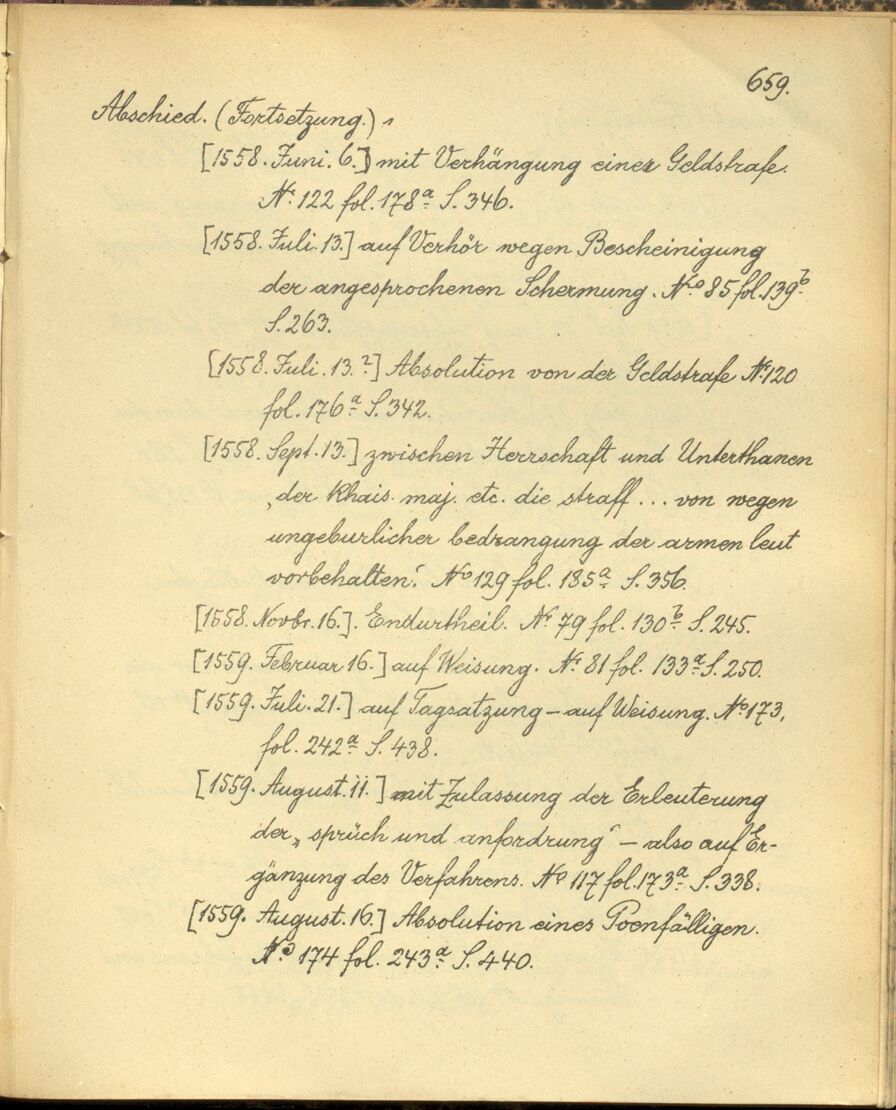 659.
Abschied. (Fortsetzung.)
[1558. Juni. 6.] mit Verhängung einer Geldstrafe.
No. 122 fol. 178a. S. 346.
[1558. Juli. 13.] auf Verhör wegen Bescheinigung
der angesprochenen Schermung. No. 85 fol. 139b.
S. 263.
[1558. Juli. 13.?] Absolution von der Geldstrafe No. 120
fol. 176a. S. 342.
[1558. Sept. 13.] zwischen Herrschaft und Unterthanen
„der khais. maj. etc. die straff ... von wegen
ungeburlicher bedrangung der armen leut
vorbehalten.“ No 129 fol. 185a. S. 356.
[1558. Novbr. 16.]. Endurtheil. No. 79 fol. 130b. S. 245.
[1559. Februar 16.] auf Weisung. No. 81 fol. 133a. S. 250.
[1559. Juli. 21.] auf Tagsatzung – auf Weisung. No. 173.
fol. 242a. S. 438.
[1559. August. 11.] mit Zulassung der Erleuterung
der „sprüch und anfordrung“ – also auf Er-
gänzung des Verfahrens. No 117 fol. 173a. S. 338.
[1559. August. 16.] Absolution eines Poenfälligen.
No. 174 fol. 243a. S. 440.